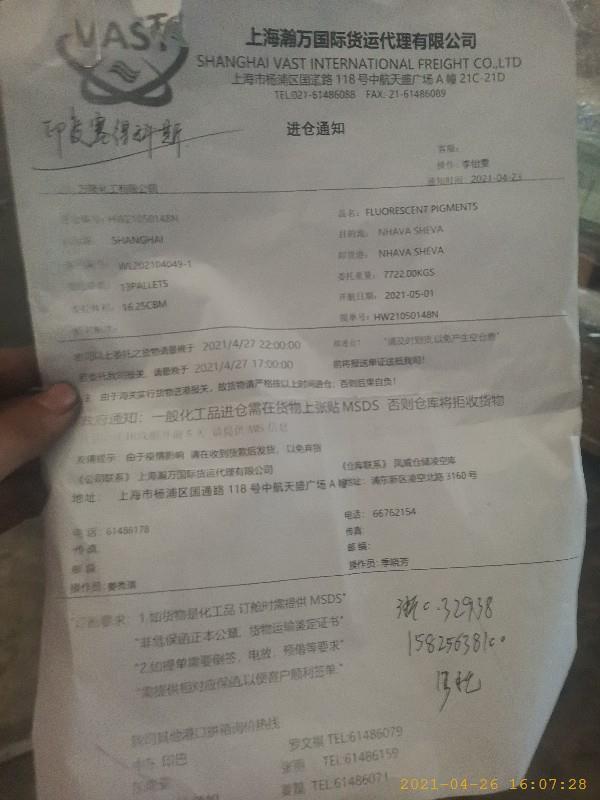 VAST
上海瀚万国际货运代理有限公司
SHANGHAI VAST INTERNATIONAL FREIGHT CO.,LTD
上海市杨浦区国通路 118 号中航天盛广场 A 幢 21C-21D
TEL:021-61486088 FAX: 21-61486089
进仓通知
客服:
操作: 李怡雯
通知时间: 2021-04-23
万隆化工有限公司
HW21050148N
品名: FLUORESCENT PIGMENTS
SHANGHAI
目的地: NHAVA SHEVA
WL202104049-1
卸货港: NHAVA SHEVA
13PALLETS
委托重量: 7722.00KGS
16.25CBM
开航日期: 2021-05-01
提单号: HW21050148N
您司以上委托之货物请最晚于 2021/4/27 22:00:00
"请及时划货以免产生空仓费"
若委托我司报关, 请最晚于 2021/4/27 17:00:00 前将报送单证送抵我司!
注: 由于海关实行货物送港报关, 故货物请严格按以上时间进仓, 否则后果自负!
政府通知: 一般化工品进仓需在货物上张贴 MSDS 否则仓库将拒收货物
友情提示: 由于疫情影响 请在收到货款后发货, 以免弃货
《公司联系》 上海瀚万国际货运代理有限公司
《仓库联系》 凤威仓储凌空库
地址: 上海市杨浦区国通路 118 号中航天盛广场 A 幢
地址: 浦东新区凌空北路 3160 号
电 话: 61486178
电话: 66762154
传真:
传真:
邮 箱:
邮 编:
操作员:
操作员: 季晓芳
"订舱要求: 1.如货物是化工品 订舱时需提供 MSDS"
"非危保函正本公章, 货物运输鉴定证书"
"2.如提单需要倒签, 电放, 预借等要求"
"需提供相对应保函,以便客户顺利签单."
浙C-32938
我司其他港口拼箱询价热线
中东 印巴 罗文祺 TEL:61486079
张丽 TEL:61486159
TEL:61486071
2021-04-26 16:07:28